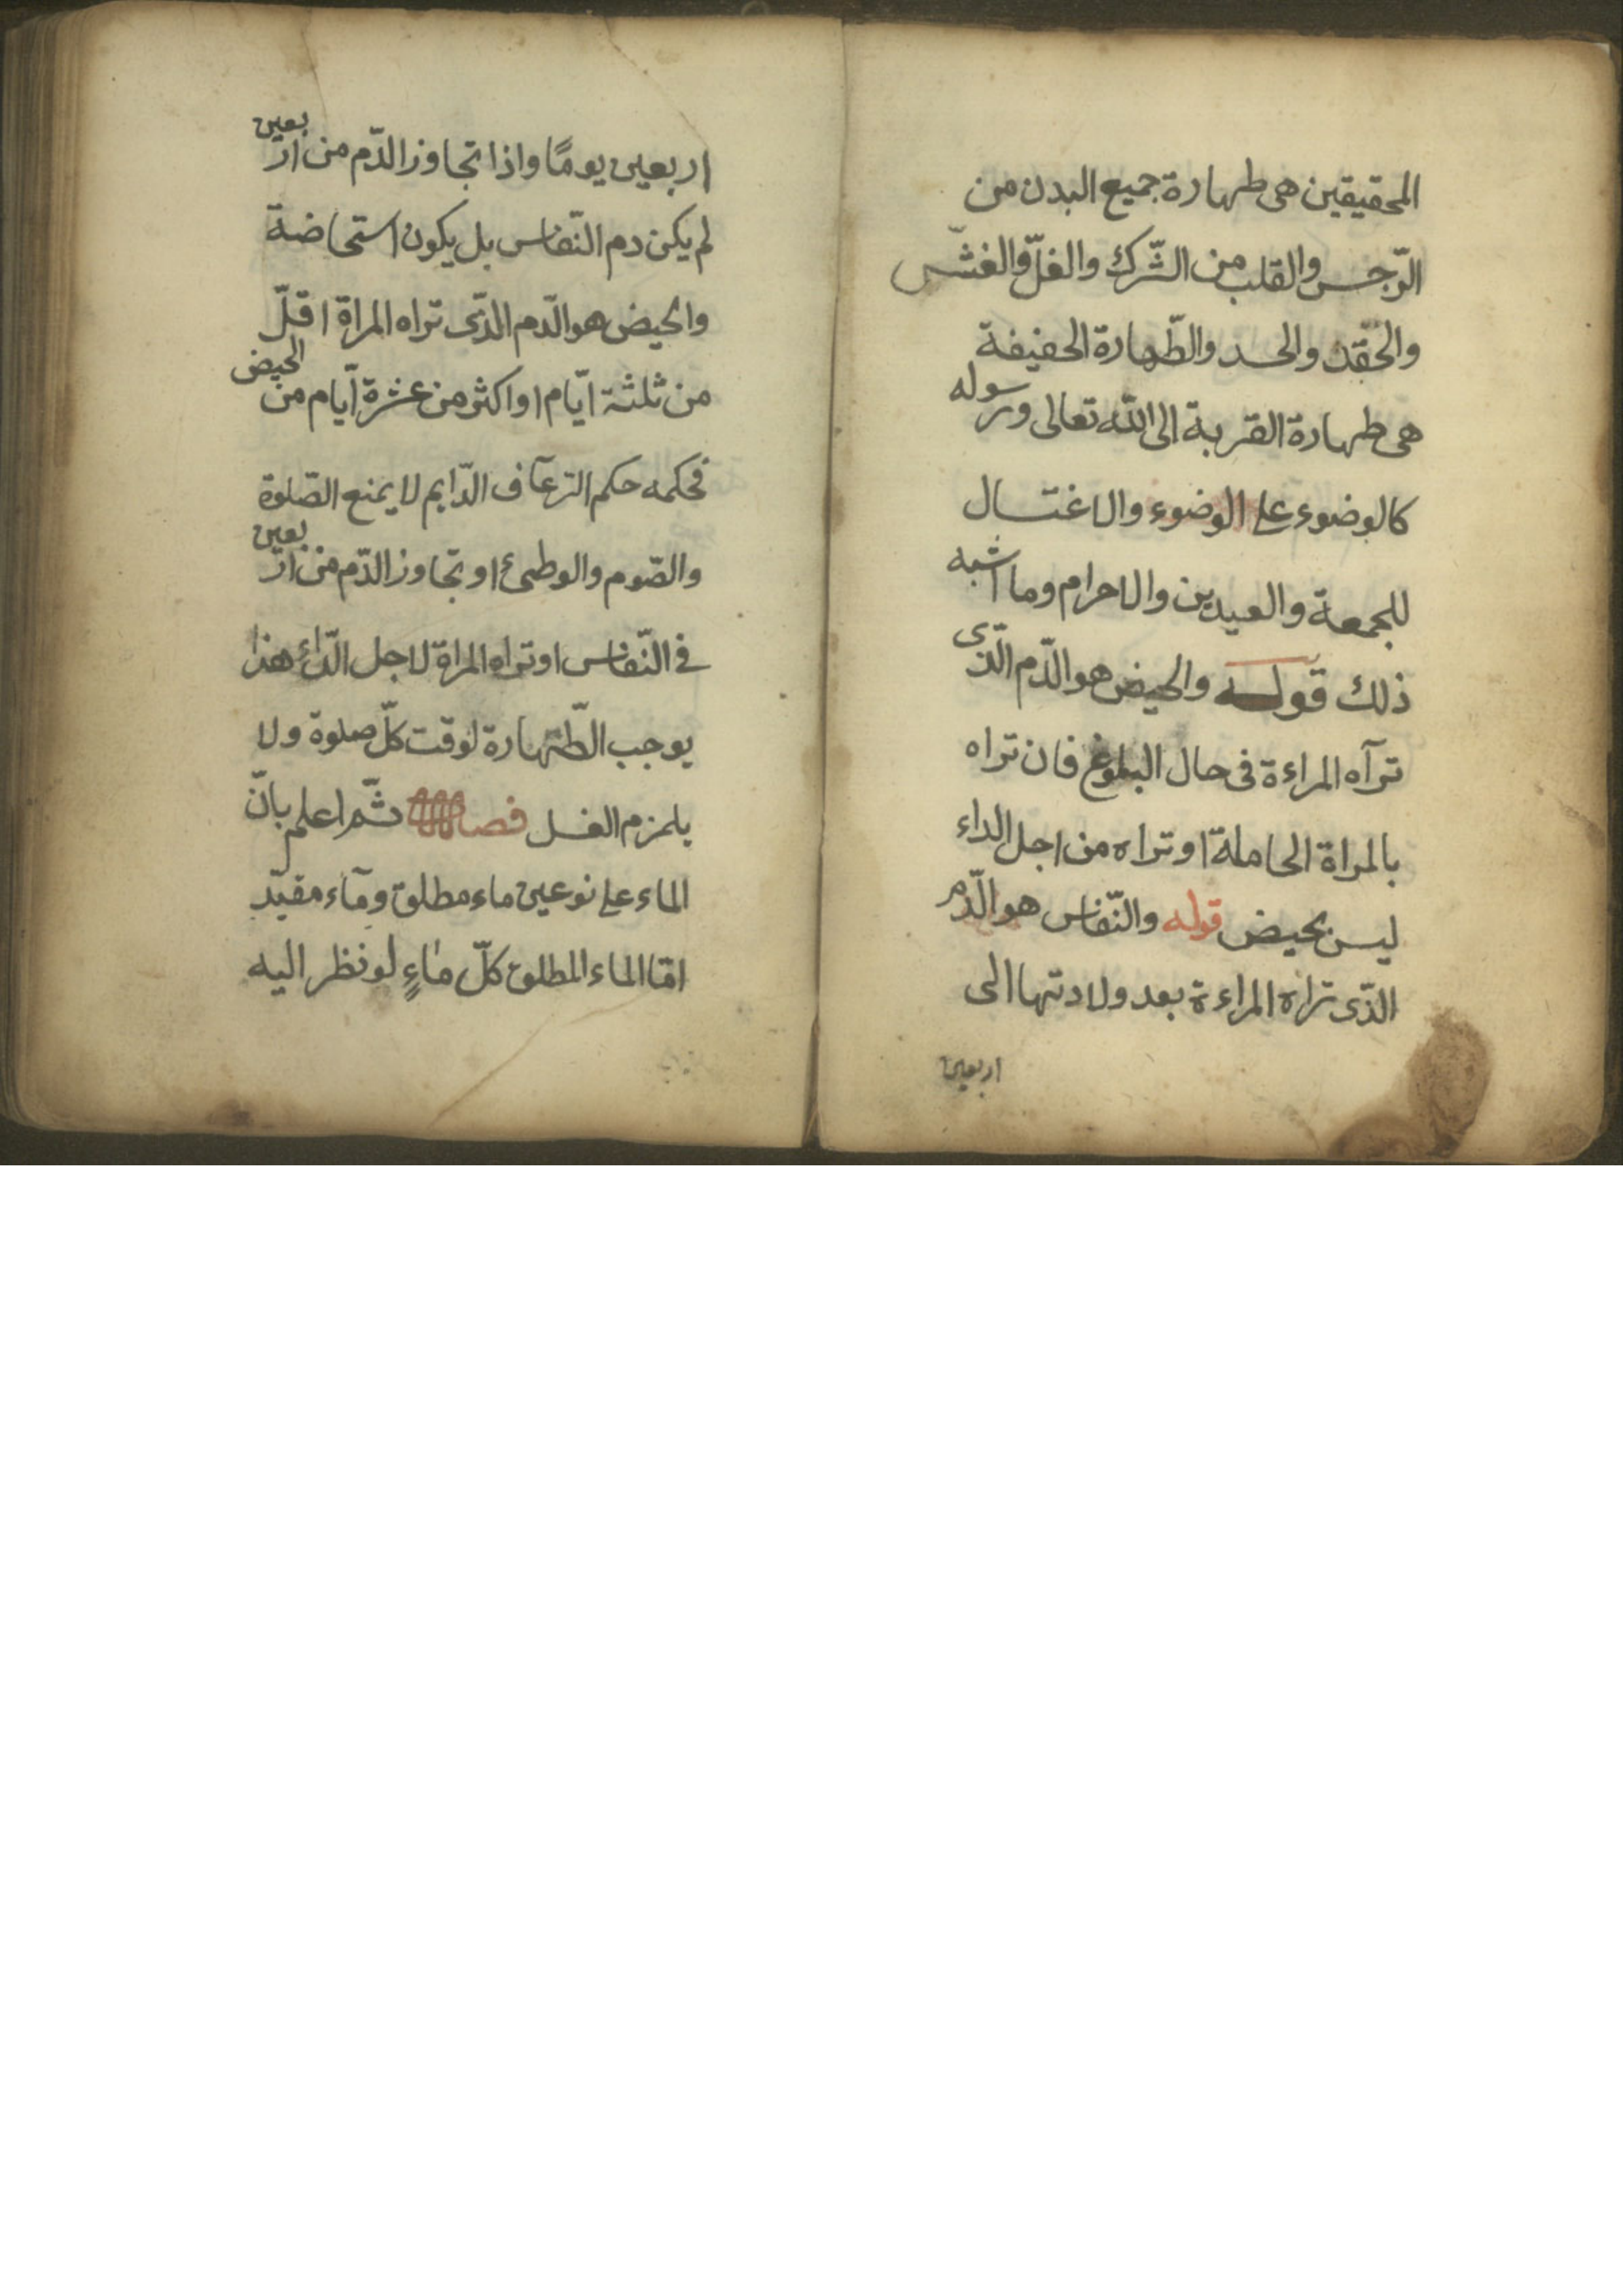 المحقيقين هى طهارة جميع البدن من
الرّجس والقلب من الشّرك والغلّ والغشّ
والحقد والحسد والطّهارة الحفيفة
هى طهارة القربة الى الله تعالى ورسوله
كالوضوء على الوضوء والاغتسال
للجمعة والعيدين والاحرام وما اشبه
ذلك قوله والحيض هو الدّم الذّى
ترآه المراءة فى حال البلوغ فان تراه
بالمراة الحاملة او تراه من اجل الداء
ليس بحيض قوله والنّفاس هو الدّم
الذّى تراه المراءة بعد ولادتها الى
اربعين
اربعين يومًا واذا تجاوز الدّم من اربعين
لم يكن دم النّفاس بل يكون استحاضة
والحيض هو الدّم الذّى تراه المراة اقلّ
من ثلثة ايّام او اكثر من عشرة ايّام من الحيض
فحكمه حكم الرّعآف الدّايم لا يمنع الصّلوة
والصّوم والوطىٔ او تجاوز الدّم من اربعين
فى النّفاس او تراه المراة لاجل الدّاء هذا
يوجب الطّهارة لوقت كلّ صلوة ولا
يلزم الغسل فصل ثمّ اعلم بانّ
الماء على نوعين ماء مطلق ومآء مقيّد
امّا الماء المطلق كلّ ماءٍ لو نظر اليه